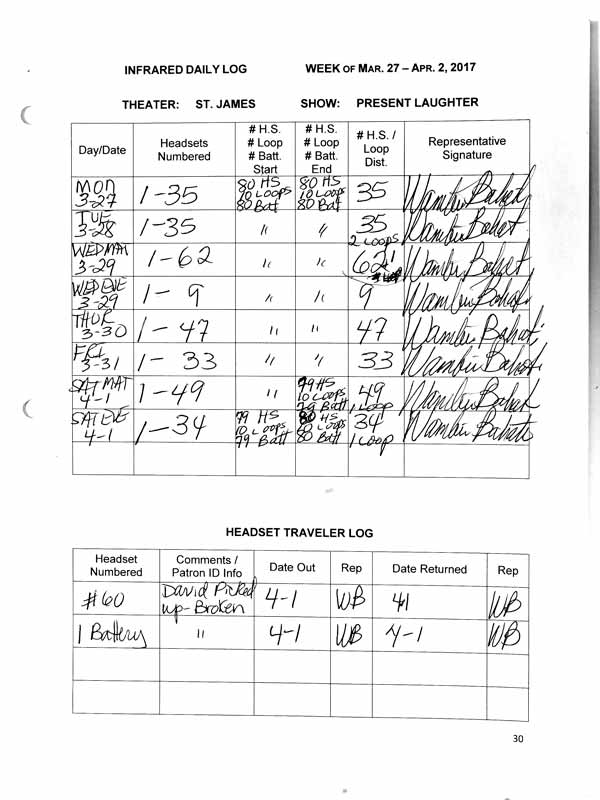 INFRARED DAILY LOG WEEK OF MAR. 27 – APR. 2, 2017
THEATER: ST. JAMES SHOW: PRESENT LAUGHTER
Day/Date Headsets Numbered # H.S. # Loop # Batt. Start # H.S. # Loop # Batt. End # H.S. / Loop Dist. Representative Signature
MON 3-27 1-35 80 HS 10 Loops 80 Bat 80 HS 10 Loops 80 Bat 35 Wambui Bahati
TUE 3-28 1-35 " " 35 2 Loops Wambui Bahati
WED MAT 3-29 1-62 " " 62 Wambui Bahati
WED EVE 3-29 1-9 " " 9 Wambui Bahati
THUR 3-30 1-47 " " 47 Wambui Bahati
FRI 3-31 1-33 " " 33 Wambui Bahati
SAT MAT 4-1 1-49 " 79 HS 10 Loops 79 Batt 49 1 Loop Wambui Bahati
SAT EVE 4-1 1-34 79 HS 10 Loops 79 Batt 80 HS Loops 80 Batt 34 1 Loop Wambui Bahati
HEADSET TRAVELER LOG
Headset Numbered Comments / Patron ID Info Date Out Rep Date Returned Rep
#60 David Picked up-Broken 4-1 WB 4-1 WB
1 Battery " 4-1 WB 4-1 WB
30